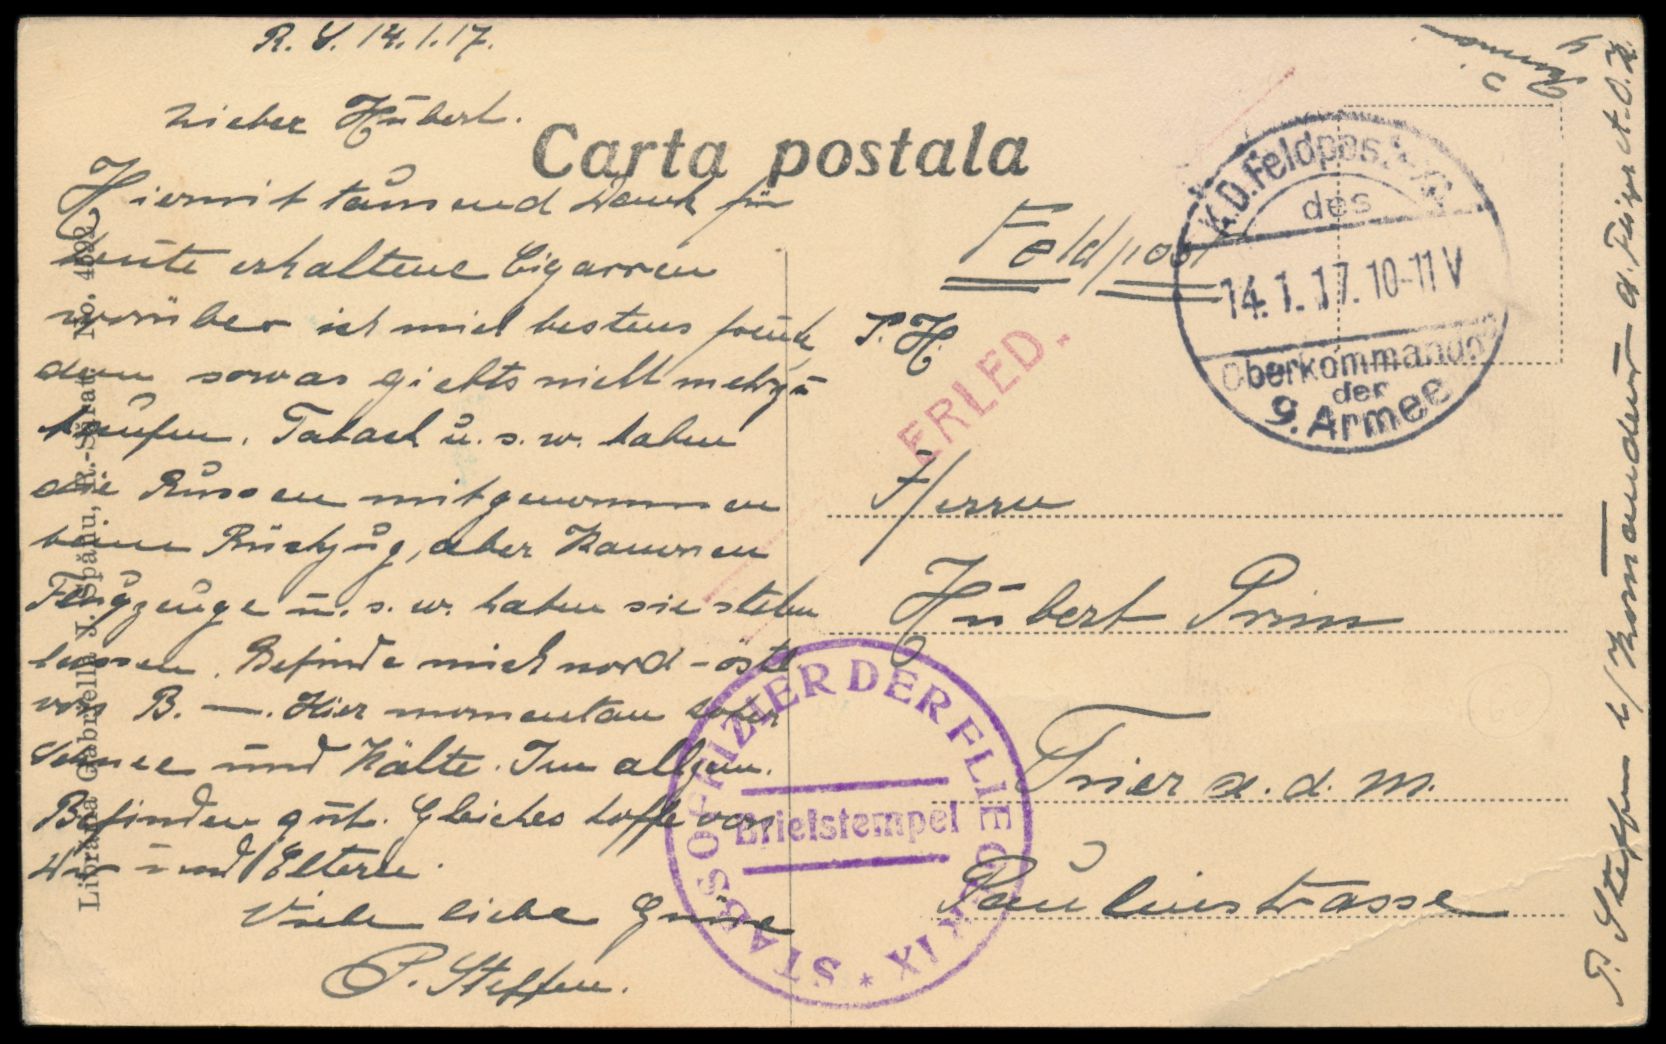 R. S. 14.1.17.
Lieber Hübert.
Hiermit tausend Dank für
heute erhaltene Cigarren
worüber ich mich bestens freue
denn sowas giebts nicht mehr zu
kaufen. Taback u. s. w. haben
die Russen mitgenommen
beim Rückzug, aber Kanonen
Flugzeuge u. s. w. haben sie stehn
lassen. Befinde mich nord-östl
von B. —. Hier momentan
Schnee und Kälte. Im allgem.
Befinden gut. Gleiches hoffe von
Dir und Eltern.
Viele liebe Grüße
P. Steffen.
Librăria Gabriella J. Spănu, R.-Sărat No. 4892
Carta postala
Feldpost
S. H.
ERLED.
K.D. Feldpost
des
14.1.17. 10-11 V
Oberkommando
der
9. Armee
Herrn
Hübert Prim
Trier a. d. M.
Paulinstrasse
STABSOFFIZIER DER FLIEGER K IX *
Briefstempel
P. Steffen b/ Komandeur d. Flieger A.O.K.
9